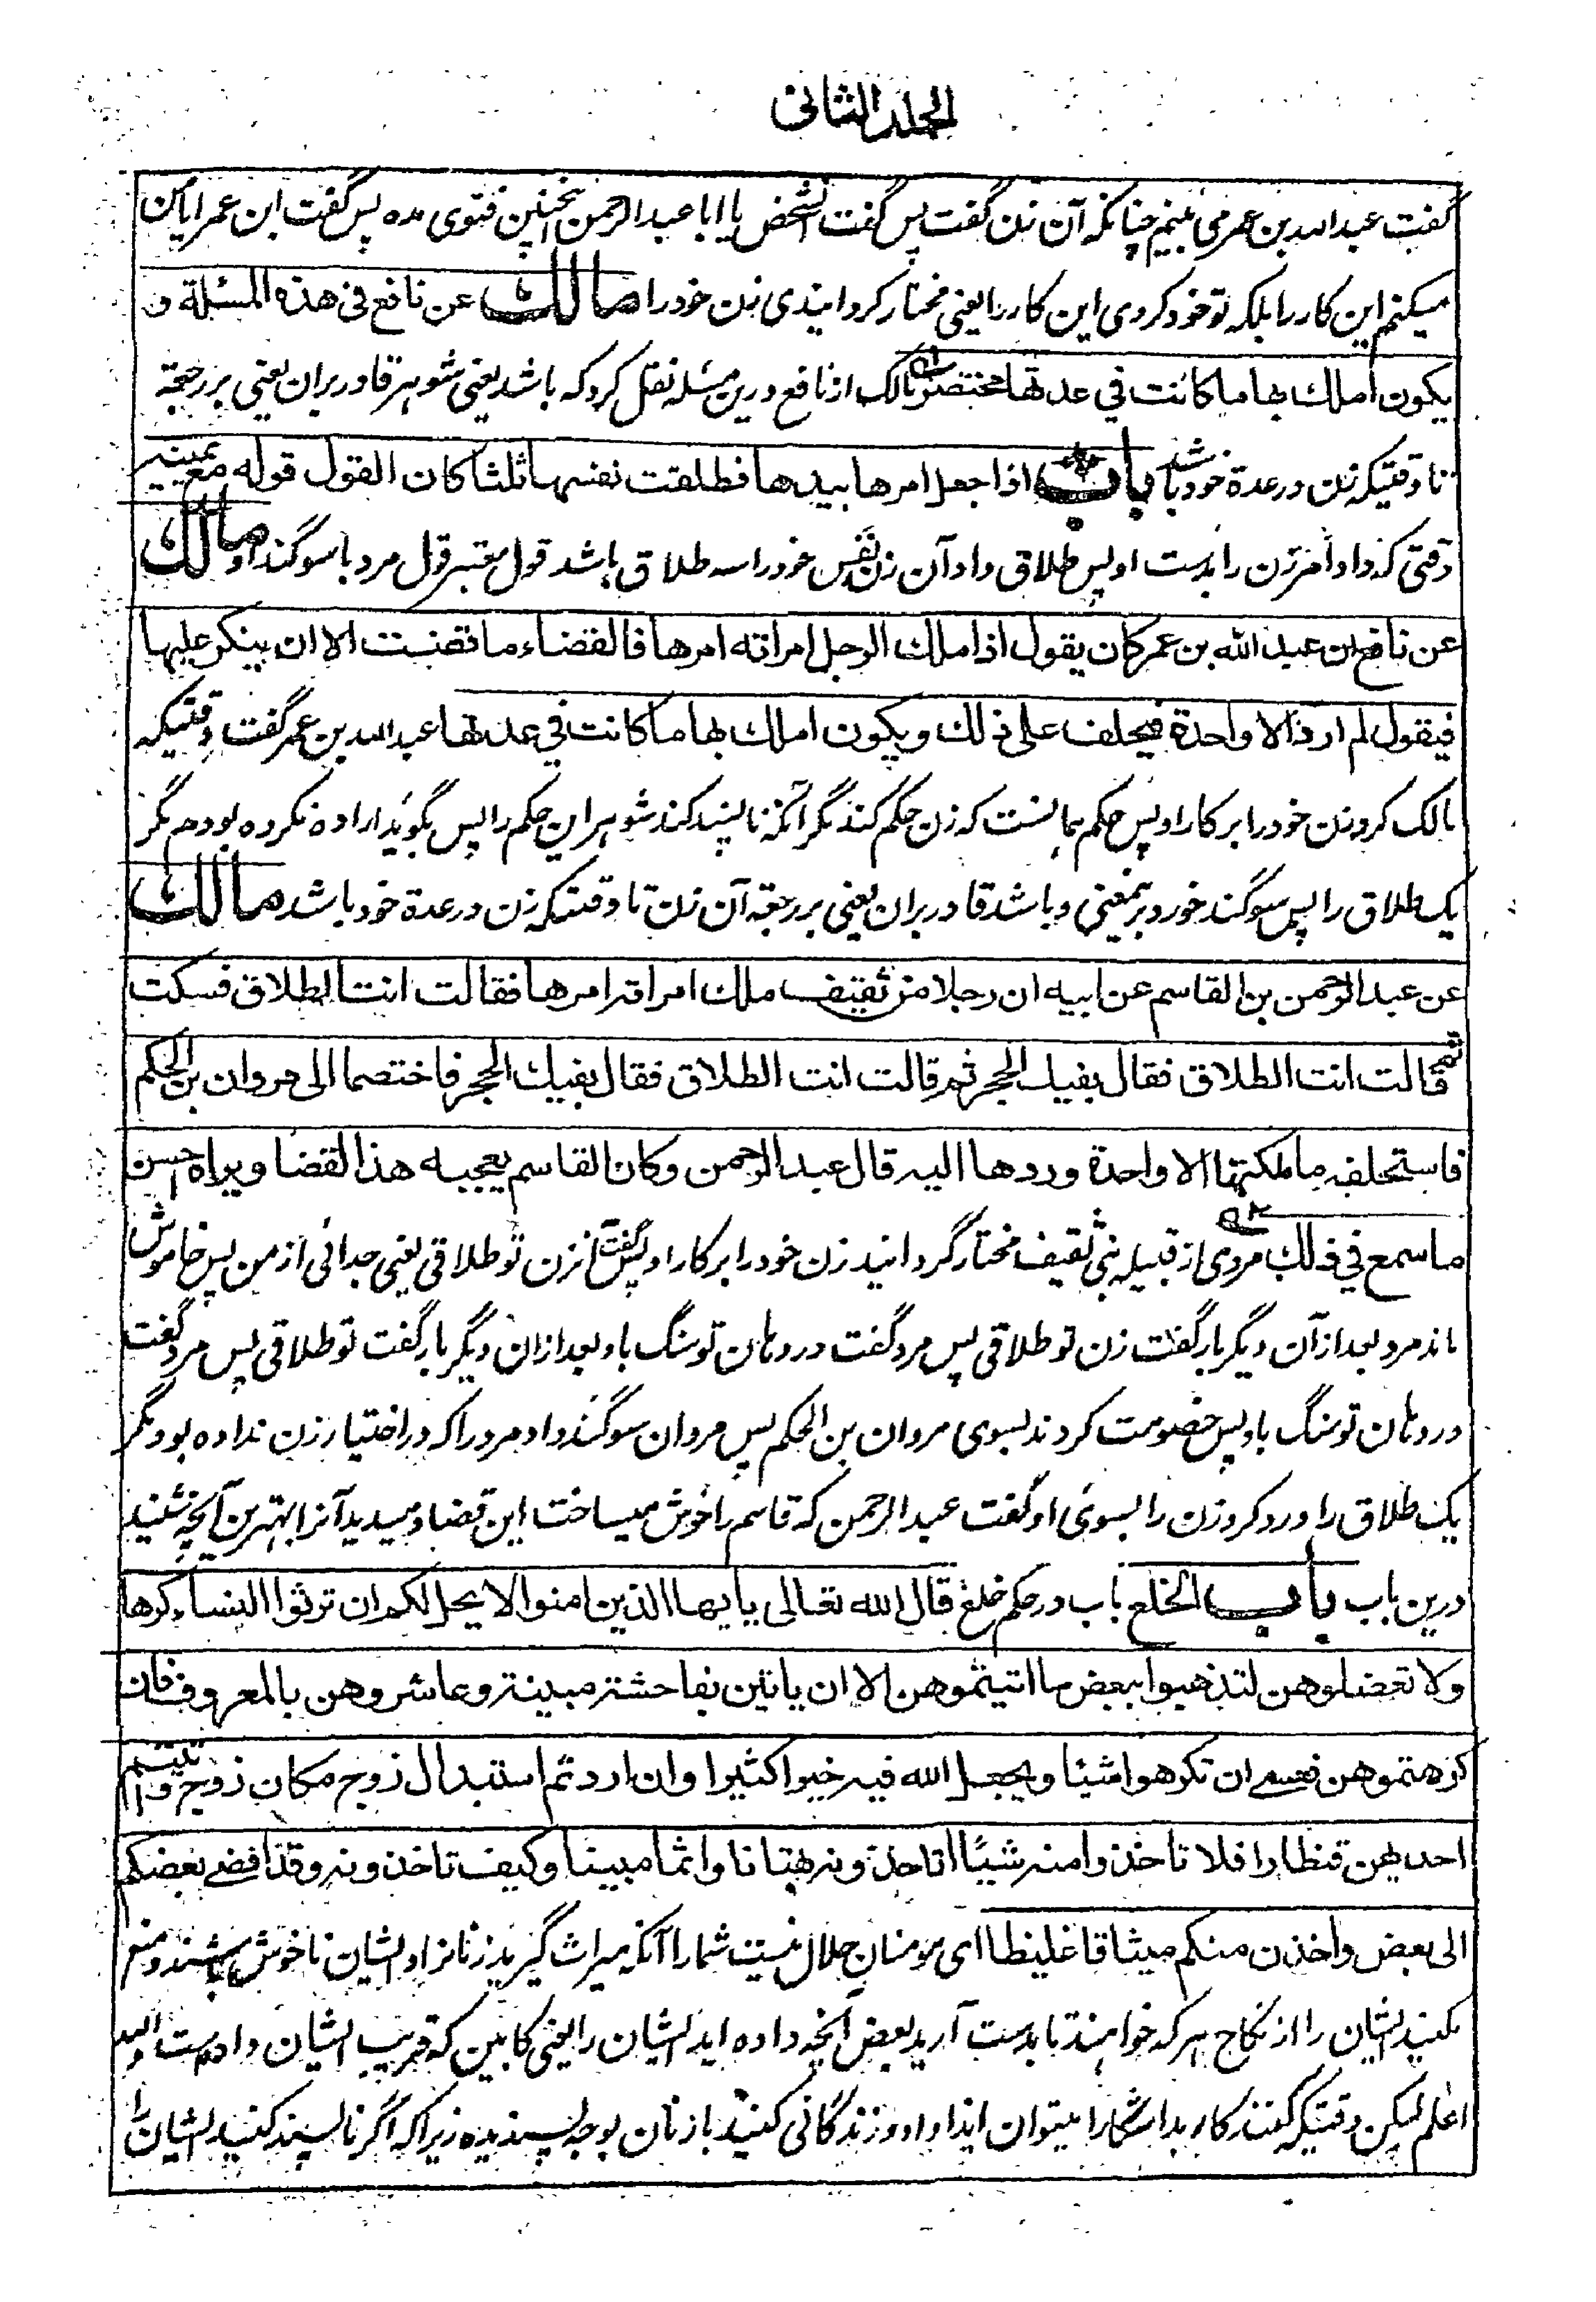 الجلد الثانی
گفت عبد الله بن عمر می بینم چنانکه آن زن گفت پس گفت آنشخص یا ابا عبد الرحمن اینچنین فتوی مده پس گفت ابن عمر ایا من
میکنم این کار را بلکه تو خود کردی این کار را یعنی مختار کردانیدی زن خود را مالك عن نافع فی هذه المسئلة و
یکون املك بها ما کانت فی عدتها مختصر مالک از نافع درین مسئله نقل کرد که باشد یعنی شوهر قادر بران یعنی بر رجعة
تا وقتیکه زن در عدة خود باشد باب اذا جعل امرها بیدها فطلقت نفسها ثلثا کان القول قوله مع یمینه
وقتی که داد امر زن را بدست او پس طلاق داد آن زن نفس خود را سه طلاق باشد قول معتبر قول مرد با سوگند او مالك
عن نافع ان عبد الله بن عمر کان یقول اذا ملك الرجل امراته امرها فالقضاء ما قضت الا ان ینکر علیها
فیقول لم ارد الا واحدة فیحلف علی ذلك ویکون املك بها ما کانت فی عدتها عبد الله بن عمر گفت وقتیکه
مالک کرد زن خود را بر کار او پس حکم همانست که زن حکم کند مگر آنکه ناپسند کند شوهر این حکم را پس بگوید اراده نکرده بودم مگر
یک طلاق را پس سوگند خورد برینمعنی و باشد قادر بران یعنی بر رجعة آن زن تا وقتیکه زن در عدة خود باشد مالك
عن عبد الرحمن بن القاسم عن ابیه ان رجلا من ثقیف ملك امراته امرها فقالت انت الطلاق فسکت
ثم قالت انت الطلاق فقال بفیك الحجر ثم قالت انت الطلاق فقال بفیك الحجر فاختصما الی مروان بن الحکم
فاستحلفه ما ملکتها الا واحدة وردها الیه قال عبد الرحمن وکان القاسم یعجبه هذا القضا ویراه احسن
ما سمع فی ذلك مردی از قبیله بنی ثقیف مختار گردانید زن خود را بر کار او پس گفت آنزن تو طلاقی یعنی جدائی از من پس خاموش
ماند مرد بعد از آن دیگر بار گفت زن تو طلاقی پس مرد گفت در دهان تو سنگ باد بعد ازان دیگر بار گفت تو طلاقی پس مرد گفت
در دهان تو سنگ باد پس خصومت کردند بسوی مروان بن الحکم پس مروان سوگند داد مرد را که در اختیار زن نداده بود مگر
یک طلاق را و رد کرد زن را بسوی او گفت عبد الرحمن که قاسم را خوش میساخت این قضا و میدید آنرا بهترین آنچه شنید
درین باب باب الخلع باب در حکم خلع قال الله تعالی یایها الذین امنوا لا یحل لکم ان ترثوا النساء کرها
ولا تعضلوهن لتذهبوا ببعض ما اتیتموهن الا ان یاتین بفاحشة مبینة وعاشروهن بالمعروف فان
کرهتموهن فعسی ان تکرهوا شیئا ویجعل الله فیه خیرا کثیرا وان اردتم استبدال زوج مکان زوج واتیتم
احدیهن قنطارا فلا تاخذوا منه شیئًا اتاخذونه بهتانا واثما مبینا وکیف تاخذونه وقد افضی بعضکم
الی بعض واخذن منکم میثاقا غلیظا ای مومنان حلال نیست شما را آنکه میراث گیرید زنانرا و ایشان ناخوش باشند و منع
مکنید ایشان را از نکاح هر که خواهند تا بدست آرید بعض آنچه داده اید ایشان را یعنی کابین که قریب ایشان داده است والله
اعلم لیکن وقتیکه کنند کار بد آشکارا میتوان ایذا داد و زندگانی کنید با زنان بوجه پسندیده زیرا که اگر ناپسند کنید ایشان را